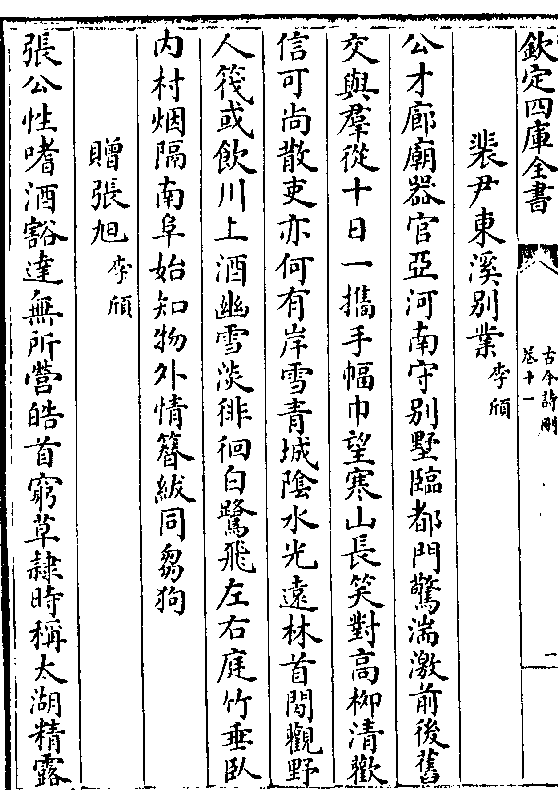 欽定四庫全書
古今詩刪
卷十一
一
裴尹東溪别業李頎
公才廊廟器官亞河南守别墅臨都門驚湍激前後舊
交與羣從十日一攜手幅巾望寒山長笑對高柳清歡
信可尚散吏亦何有岸雪青城隂水光遠林首閒觀野
人筏或飲川上酒幽雪淡徘徊白鷺飛左右庭竹垂卧
内村烟隔南阜始知物外情簪紱同芻狗
贈張旭李頎
張公性嗜酒豁達無所營皓首窮草隸時稱太湖精露